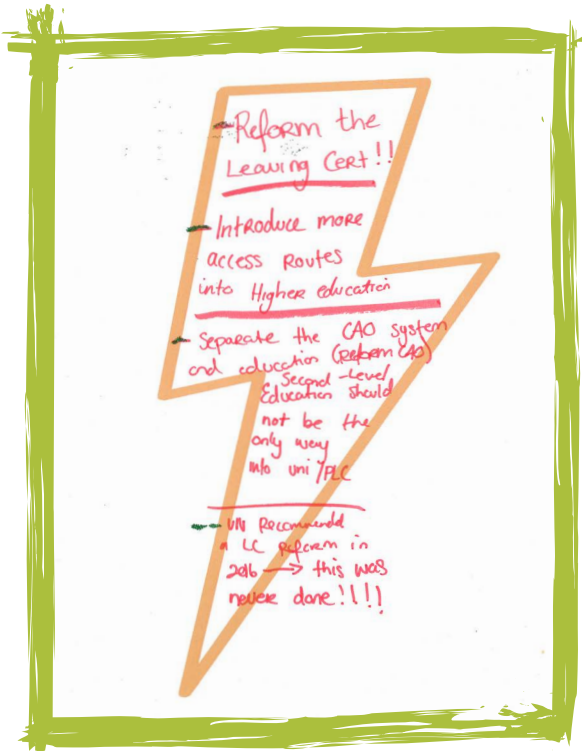 - Reform the
Leaving Cert!!
- Introduce more
access Routes
into Higher education
- Separate the CAO system
and education (Reform CAO)
Second-Level
Education should
not be the
only way
into uni/PLC
- UN Recommendd
a LC Reform in
2016 → this was
never done!!!!